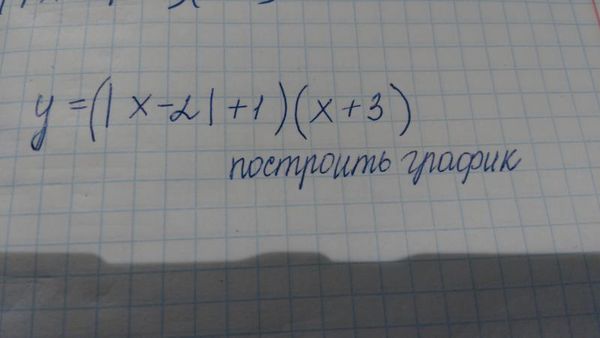 y = (|x-2|+1)(x+3)
построить график